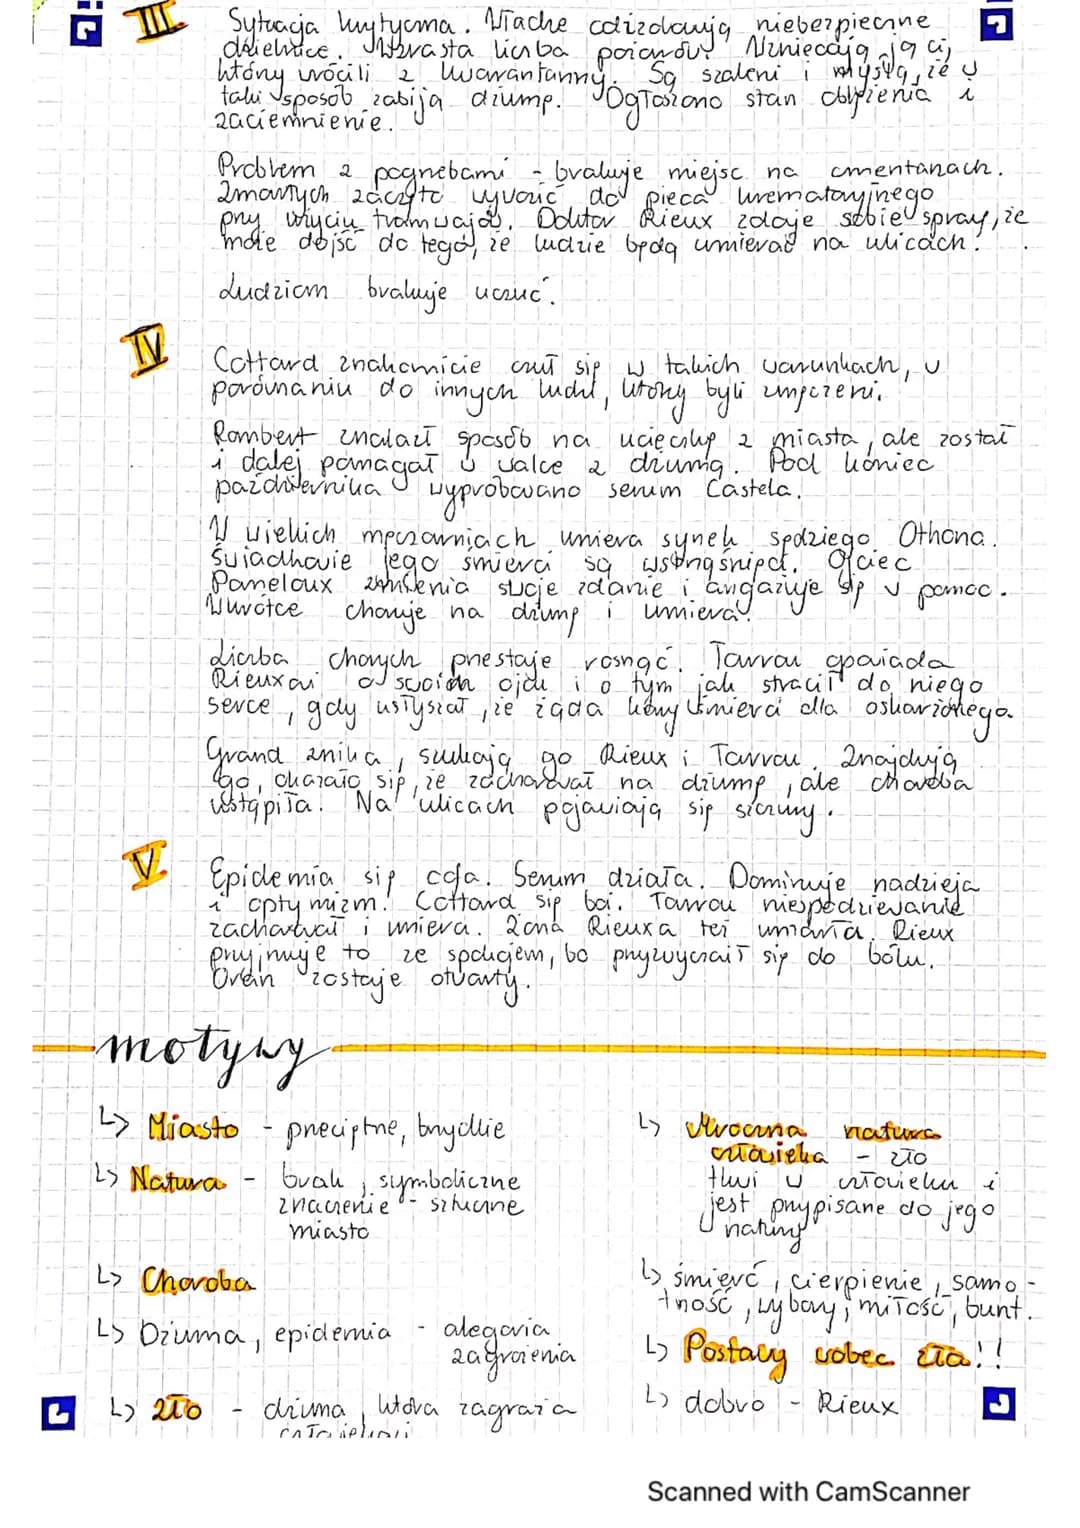 III Sytuacja krytyczna. Władze odizolowują niebezpieczne
dzielnice. Wzrasta liczba pożarów. Wzniecają ją ci,
którzy wrócili z kwarantanny. Są szaleni i myślą, że w
taki sposób zabiją dżumę. Ogłoszono stan oblężenia i
zaciemnienie.
Problem z pogrzebami - brakuje miejsc na cmentarzach.
Zmarłych zaczęto wywozić do pieca krematoryjnego
przy użyciu tramwajów. Doktor Rieux zdaje sobie sprawę, że
może dojść do tego, że ludzie będą umierać na ulicach.
Ludziom brakuje uczuć.
IV Cottard znakomicie czuł się w takich warunkach, w
porównaniu do innych ludzi, którzy byli zmęczeni.
Rambert znalazł sposób na ucieczkę z miasta, ale został
i dalej pomagał w walce z dżumą. Pod koniec
października wypróbowano serum Castela.
W wielkich męczarniach umiera synek sędziego Othona.
Świadkowie jego śmierci są wstrząśnięci. Ojciec
Paneloux zmienia swoje zdanie i angażuje się w pomoc.
Wkrótce choruje na dżumę i umiera.
Liczba chorych przestaje rosnąć. Tarrou opowiada
Rieuxowi o swoim ojcu i o tym jak stracił do niego
serce, gdy usłyszał, że żąda kary śmierci dla oskarżonego.
Grand znika, szukają go Rieux i Tarrou. Znajdują
go, okazało się, że zachorował na dżumę, ale choroba
ustąpiła. Na ulicach pojawiają się szczury.
V Epidemia się cofa. Serum działa. Dominuje nadzieja
i optymizm. Cottard się boi. Tarrou niespodziewanie
zachorował i umiera. Żona Rieuxa też umarła. Rieux
przyjmuje to ze spokojem, bo przyzwyczaił się do bólu.
Oran zostaje otwarty.
motywy
↳ Miasto - przeciętne, brzydkie
↳ Natura - brak, symboliczne
znaczenie - sztuczne
miasto
↳ Choroba
↳ Dżuma, epidemia - alegoria
zagrożenia
↳ Zło - dżuma, która zagraża
człowiekowi
↳ Mroczna natura
człowieka - zło
tkwi w człowieku i
jest przypisane do jego
natury
↳ śmierć, cierpienie, samo-
tność, wybory, miłość, bunt.
↳ Postawy wobec zła!!
↳ dobro - Rieux
Scanned with CamScanner